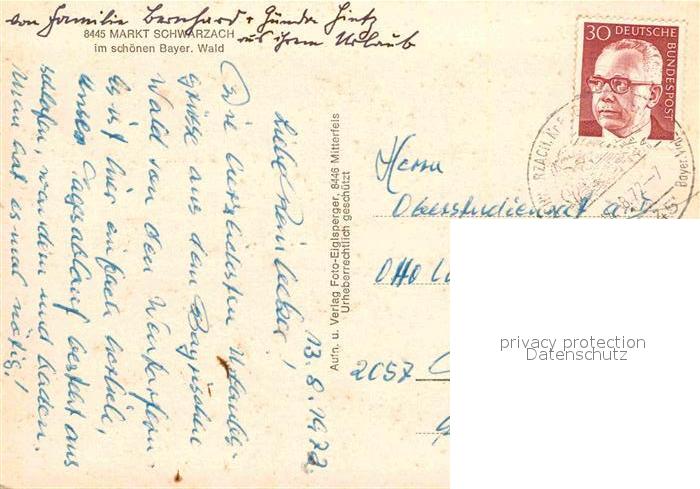 von Familie Bernhard + Gündra Hintz
aus ihrem Urlaub
8445 MARKT SCHWARZACH
im schönen Bayer. Wald
13.8.1972
Die herzlichsten Urlaubs-
grüße aus dem Bayrischen
Wald von den Wenkufern.
Es ist hier einfach herrlich,
unser Tagesablauf besteht aus
schlafen, wandern und baden.
Man hat es mal nötig!
Aufn. u. Verlag Foto-Eiglsperger, 8446 Mitterfels
Urheberrechtlich geschützt
30 DEUTSCHE
BUNDESPOST
Herrn
Oberstudienrat a.D.
Otto
2057
privacy protection
Datenschutz